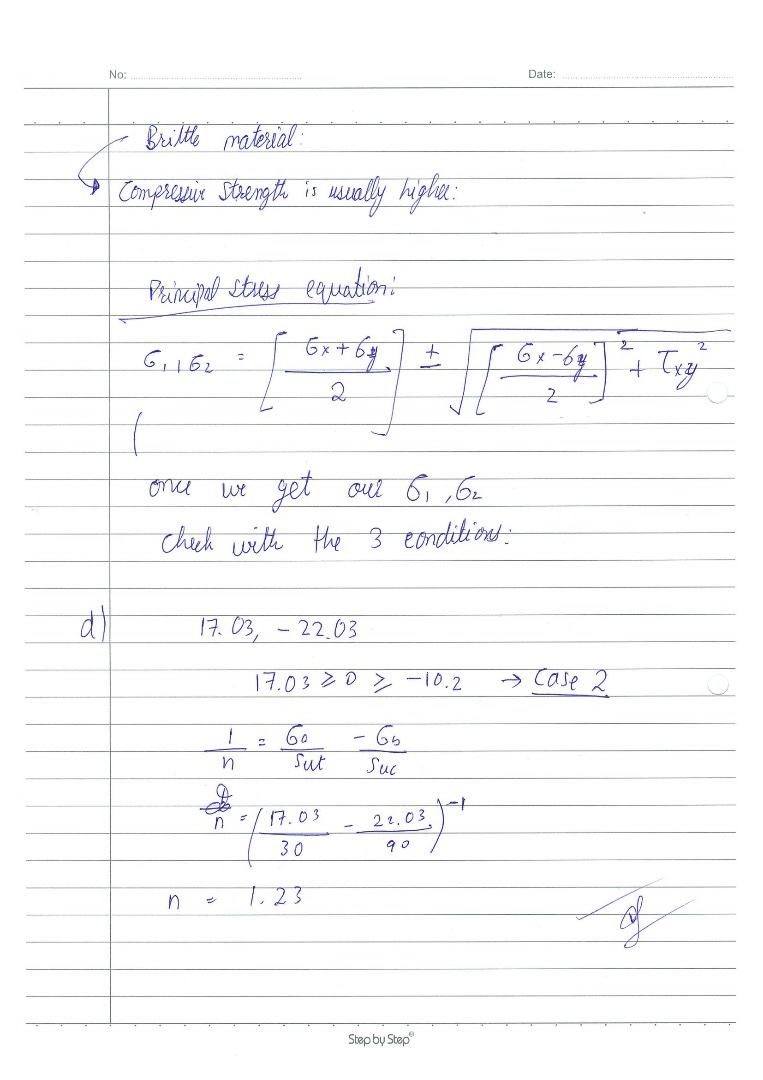 No: Date:
Brittle material:
Compressive strength is usually higher:
Principal stress equation:
σ1, σ2 = [ (σx + σy) / 2 ] ± √( [ (σx - σy) / 2 ]² + τxy² )
once we get our σ1, σ2
Check with the 3 conditions:
d) 17.03, - 22.03
17.03 ≥ 0 ≥ -10.2 → Case 2
1/n = σa/Sut - σb/Suc
n = ( 17.03/30 - 22.03/90 )^-1
n = 1.23
Step by Step®